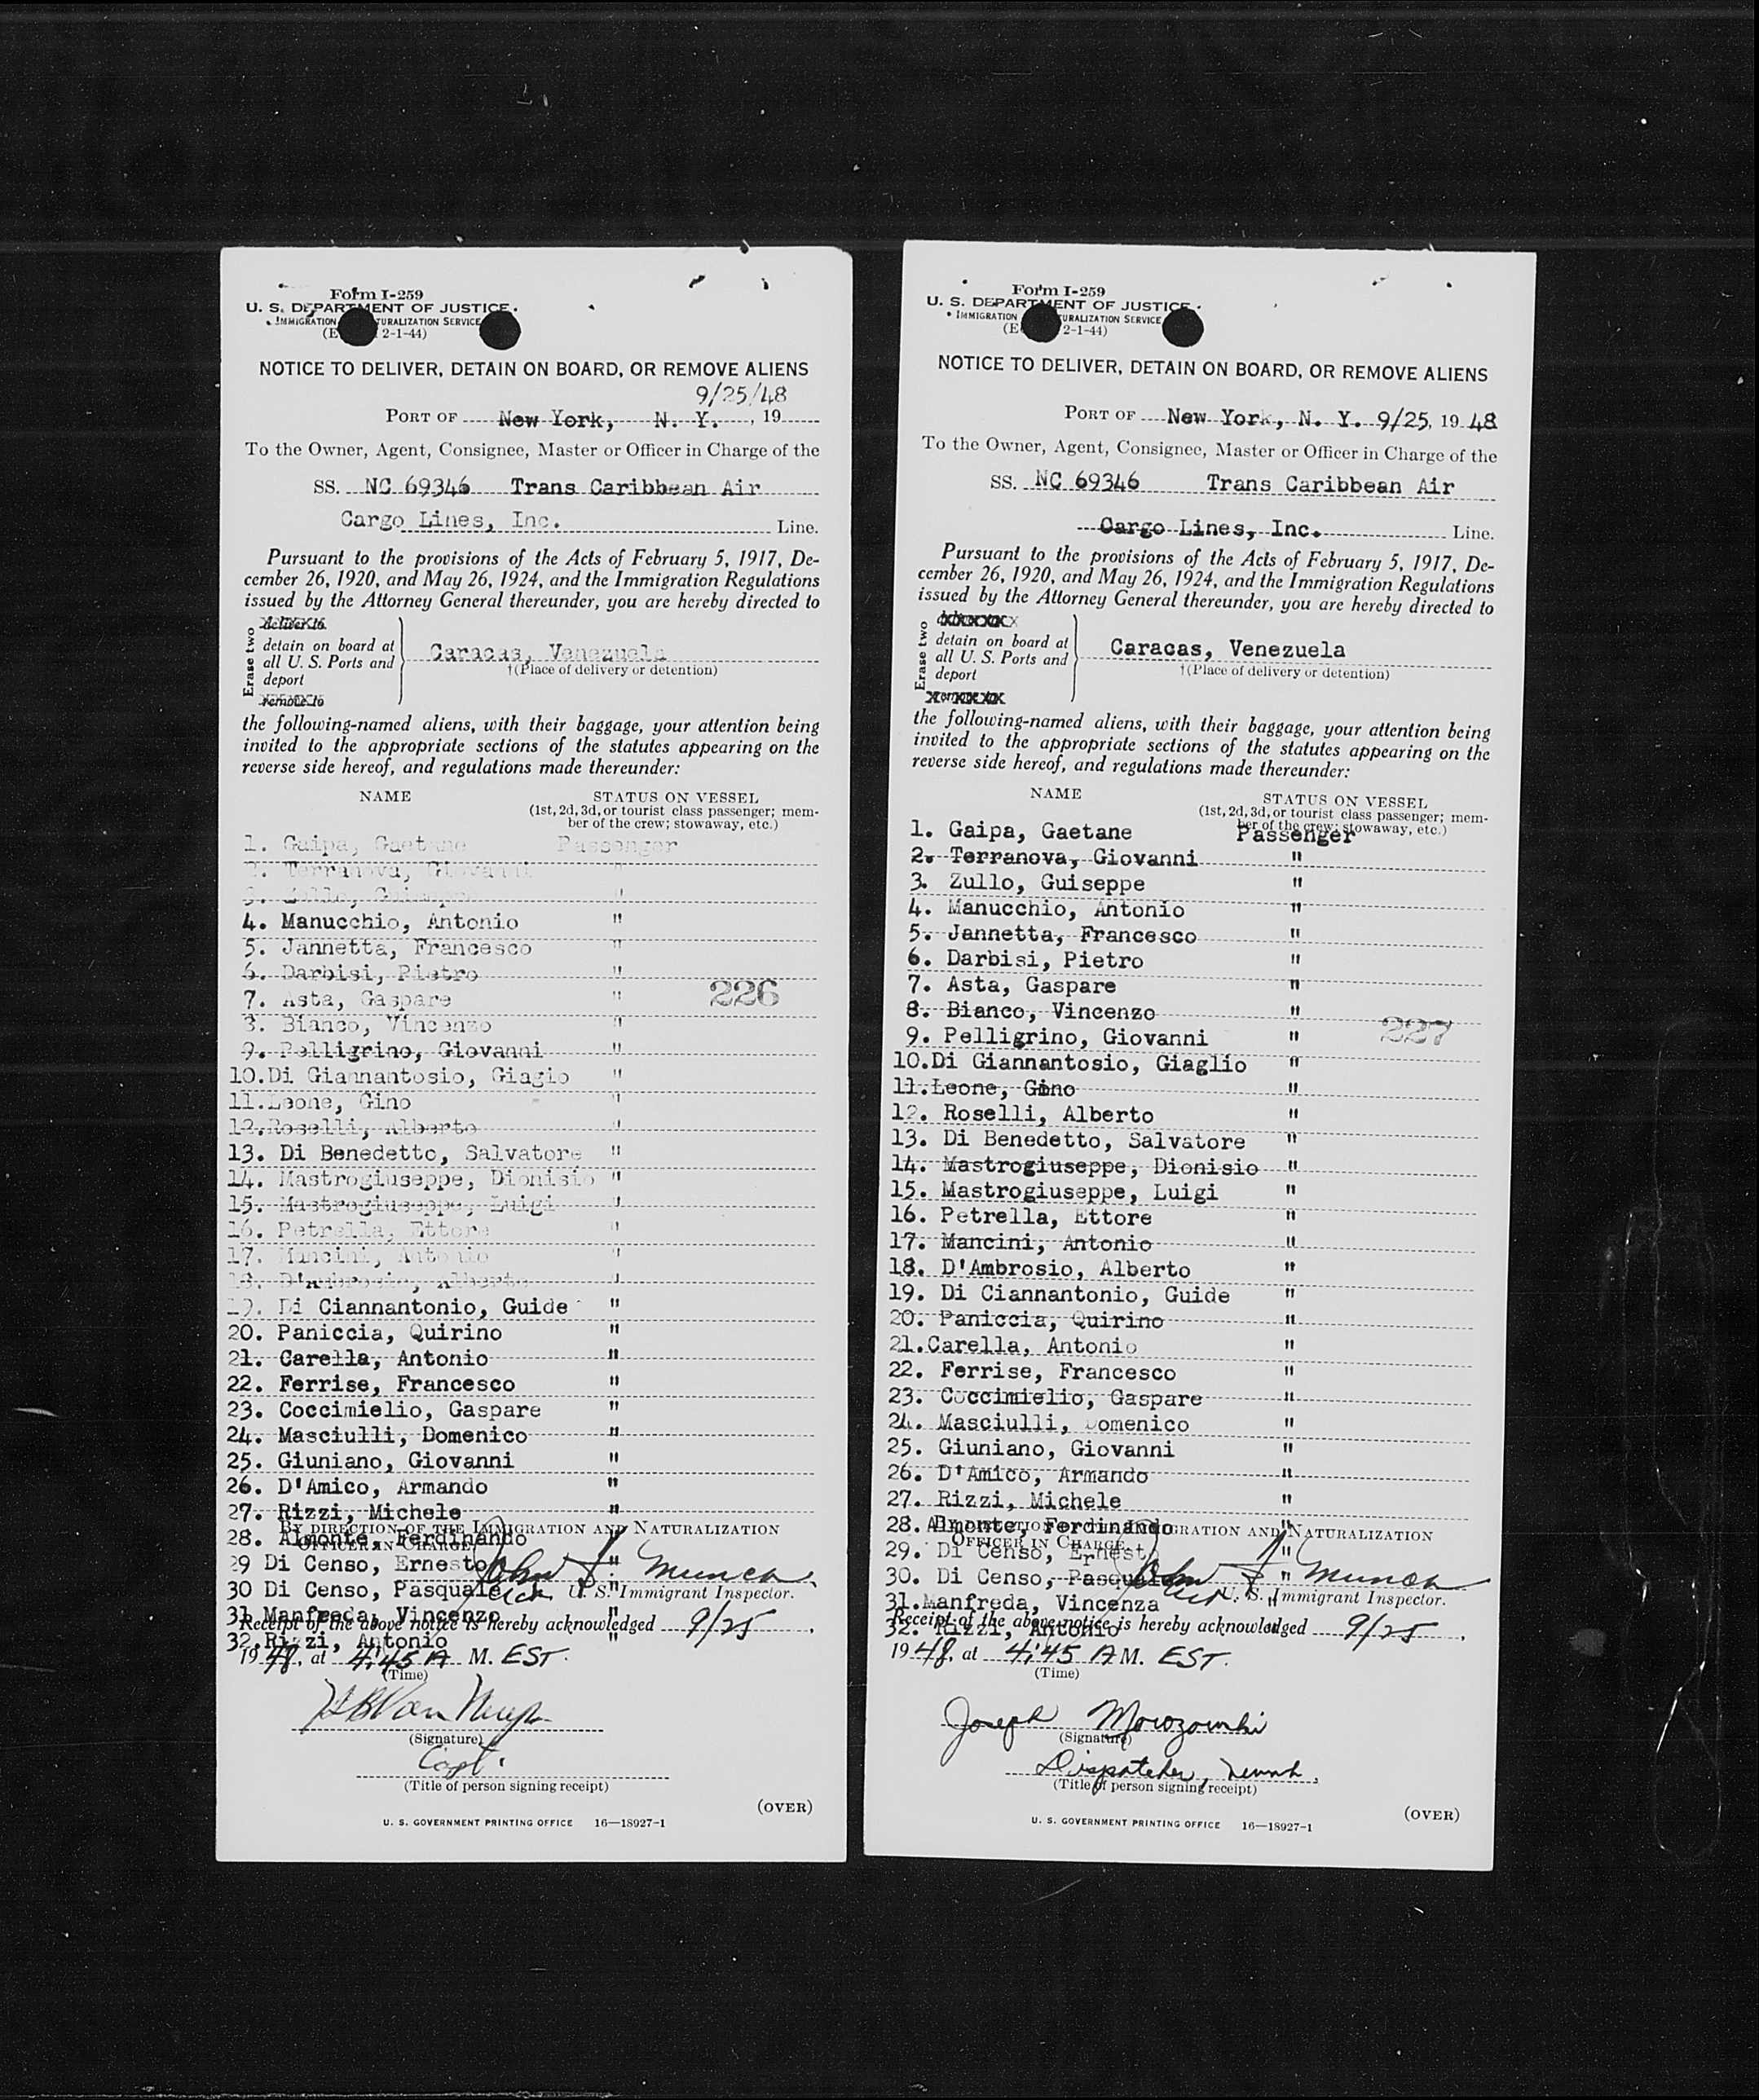 Form I-259
U. S. DEPARTMENT OF JUSTICE
IMMIGRATION NATURALIZATION SERVICE
2-1-44)
NOTICE TO DELIVER, DETAIN ON BOARD, OR REMOVE ALIENS
9/25/48
PORT OF New York, N. Y., 19
To the Owner, Agent, Consignee, Master or Officer in Charge of the
SS. NC 69346 Trans Caribbean Air
Cargo Lines, Inc. Line.
Pursuant to the provisions of the Acts of February 5, 1917, De-
cember 26, 1920, and May 26, 1924, and the Immigration Regulations
issued by the Attorney General thereunder, you are hereby directed to
Erase two
deliver to
detain on board at
all U. S. Ports and
deport
remove to
Caracas, Venezuela
†(Place of delivery or detention)
the following-named aliens, with their baggage, your attention being
invited to the appropriate sections of the statutes appearing on the
reverse side hereof, and regulations made thereunder:
NAME STATUS ON VESSEL
(1st, 2d, 3d, or tourist class passenger; mem-
ber of the crew; stowaway, etc.)
1. Gaipa, Gaetane Passenger
2. Terranova, Giovanni "
3. Zullo, Guiseppe "
4. Manucchio, Antonio "
5. Jannetta, Francesco "
6. Darbisi, Pietro "
7. Asta, Gaspare " 226
8. Bianco, Vincenzo "
9. Pelligrino, Giovanni "
10.Di Giannantosio, Giagio "
11.Leone, Gino "
12.Roselli, Alberto "
13. Di Benedetto, Salvatore "
14. Mastrogiuseppe, Dionisio "
15. Mastrogiuseppe, Luigi "
16. Petrella, Ettore "
17. Mancini, Antonio "
18. D'Ambrosio, Alberto "
19. Di Ciannantonio, Guide "
20. Paniccia, Quirino "
21. Carella, Antonio "
22. Ferrise, Francesco "
23. Coccimielio, Gaspare "
24. Masciulli, Domenico "
25. Giuniano, Giovanni "
26. D'Amico, Armando "
27. Rizzi, Michele "
BY DIRECTION OF THE IMMIGRATION AND NATURALIZATION
28. Almonte, Ferdinando "
OFFICER IN CHARGE,
29 Di Censo, Ernesto "
John F. Munch
30 Di Censo, Pasquale "
U. S. Immigrant Inspector.
31.Manfreda, Vincenzo "
Receipt of the above notice is hereby acknowledged 9/25,
32.Rizzi, Antonio "
1948, at 4:45 A M. EST.
(Time)
(Signature)
Capt.
(Title of person signing receipt)
(OVER)
U. S. GOVERNMENT PRINTING OFFICE 16—18927-1
Form I-259
U. S. DEPARTMENT OF JUSTICE
IMMIGRATION NATURALIZATION SERVICE
2-1-44)
NOTICE TO DELIVER, DETAIN ON BOARD, OR REMOVE ALIENS
PORT OF New York, N. Y. 9/25, 19 48
To the Owner, Agent, Consignee, Master or Officer in Charge of the
SS. NC 69346 Trans Caribbean Air
Cargo Lines, Inc. Line.
Pursuant to the provisions of the Acts of February 5, 1917, De-
cember 26, 1920, and May 26, 1924, and the Immigration Regulations
issued by the Attorney General thereunder, you are hereby directed to
Erase two
detain on board at
all U. S. Ports and
deport
remove to
Caracas, Venezuela
†(Place of delivery or detention)
the following-named aliens, with their baggage, your attention being
invited to the appropriate sections of the statutes appearing on the
reverse side hereof, and regulations made thereunder:
NAME STATUS ON VESSEL
(1st, 2d, 3d, or tourist class passenger; mem-
ber of the crew; stowaway, etc.)
1. Gaipa, Gaetane Passenger
2. Terranova, Giovanni "
3. Zullo, Guiseppe "
4. Manucchio, Antonio "
5. Jannetta, Francesco "
6. Darbisi, Pietro "
7. Asta, Gaspare "
8. Bianco, Vincenzo "
9. Pelligrino, Giovanni " 227
10.Di Giannantosio, Giaglio "
11.Leone, Gino "
12. Roselli, Alberto "
13. Di Benedetto, Salvatore "
14. Mastrogiuseppe, Dionisio "
15. Mastrogiuseppe, Luigi "
16. Petrella, Ettore "
17. Mancini, Antonio "
18. D'Ambrosio, Alberto "
19. Di Ciannantonio, Guide "
20. Paniccia, Quirino "
21.Carella, Antonio "
22. Ferrise, Francesco "
23. Coccimielio, Gaspare "
24. Masciulli, Domenico "
25. Giuniano, Giovanni "
26. D'Amico, Armando "
27. Rizzi, Michele "
28. Almonte, Ferdinando "
BY DIRECTION OF THE IMMIGRATION AND NATURALIZATION
OFFICER IN CHARGE,
29. Di Censo, Ernest "
30. Di Censo, Pasquale "
John F. Munch
U. S. Immigrant Inspector.
31.Manfreda, Vincenza "
Receipt of the above notice is hereby acknowledged 9/25,
32. Rizzi, Antonio "
1948, at 4:45 A M. EST.
(Time)
Joseph Morozowski
(Signature)
Dispatcher,
(Title of person signing receipt)
(OVER)
U. S. GOVERNMENT PRINTING OFFICE 16—18927-1